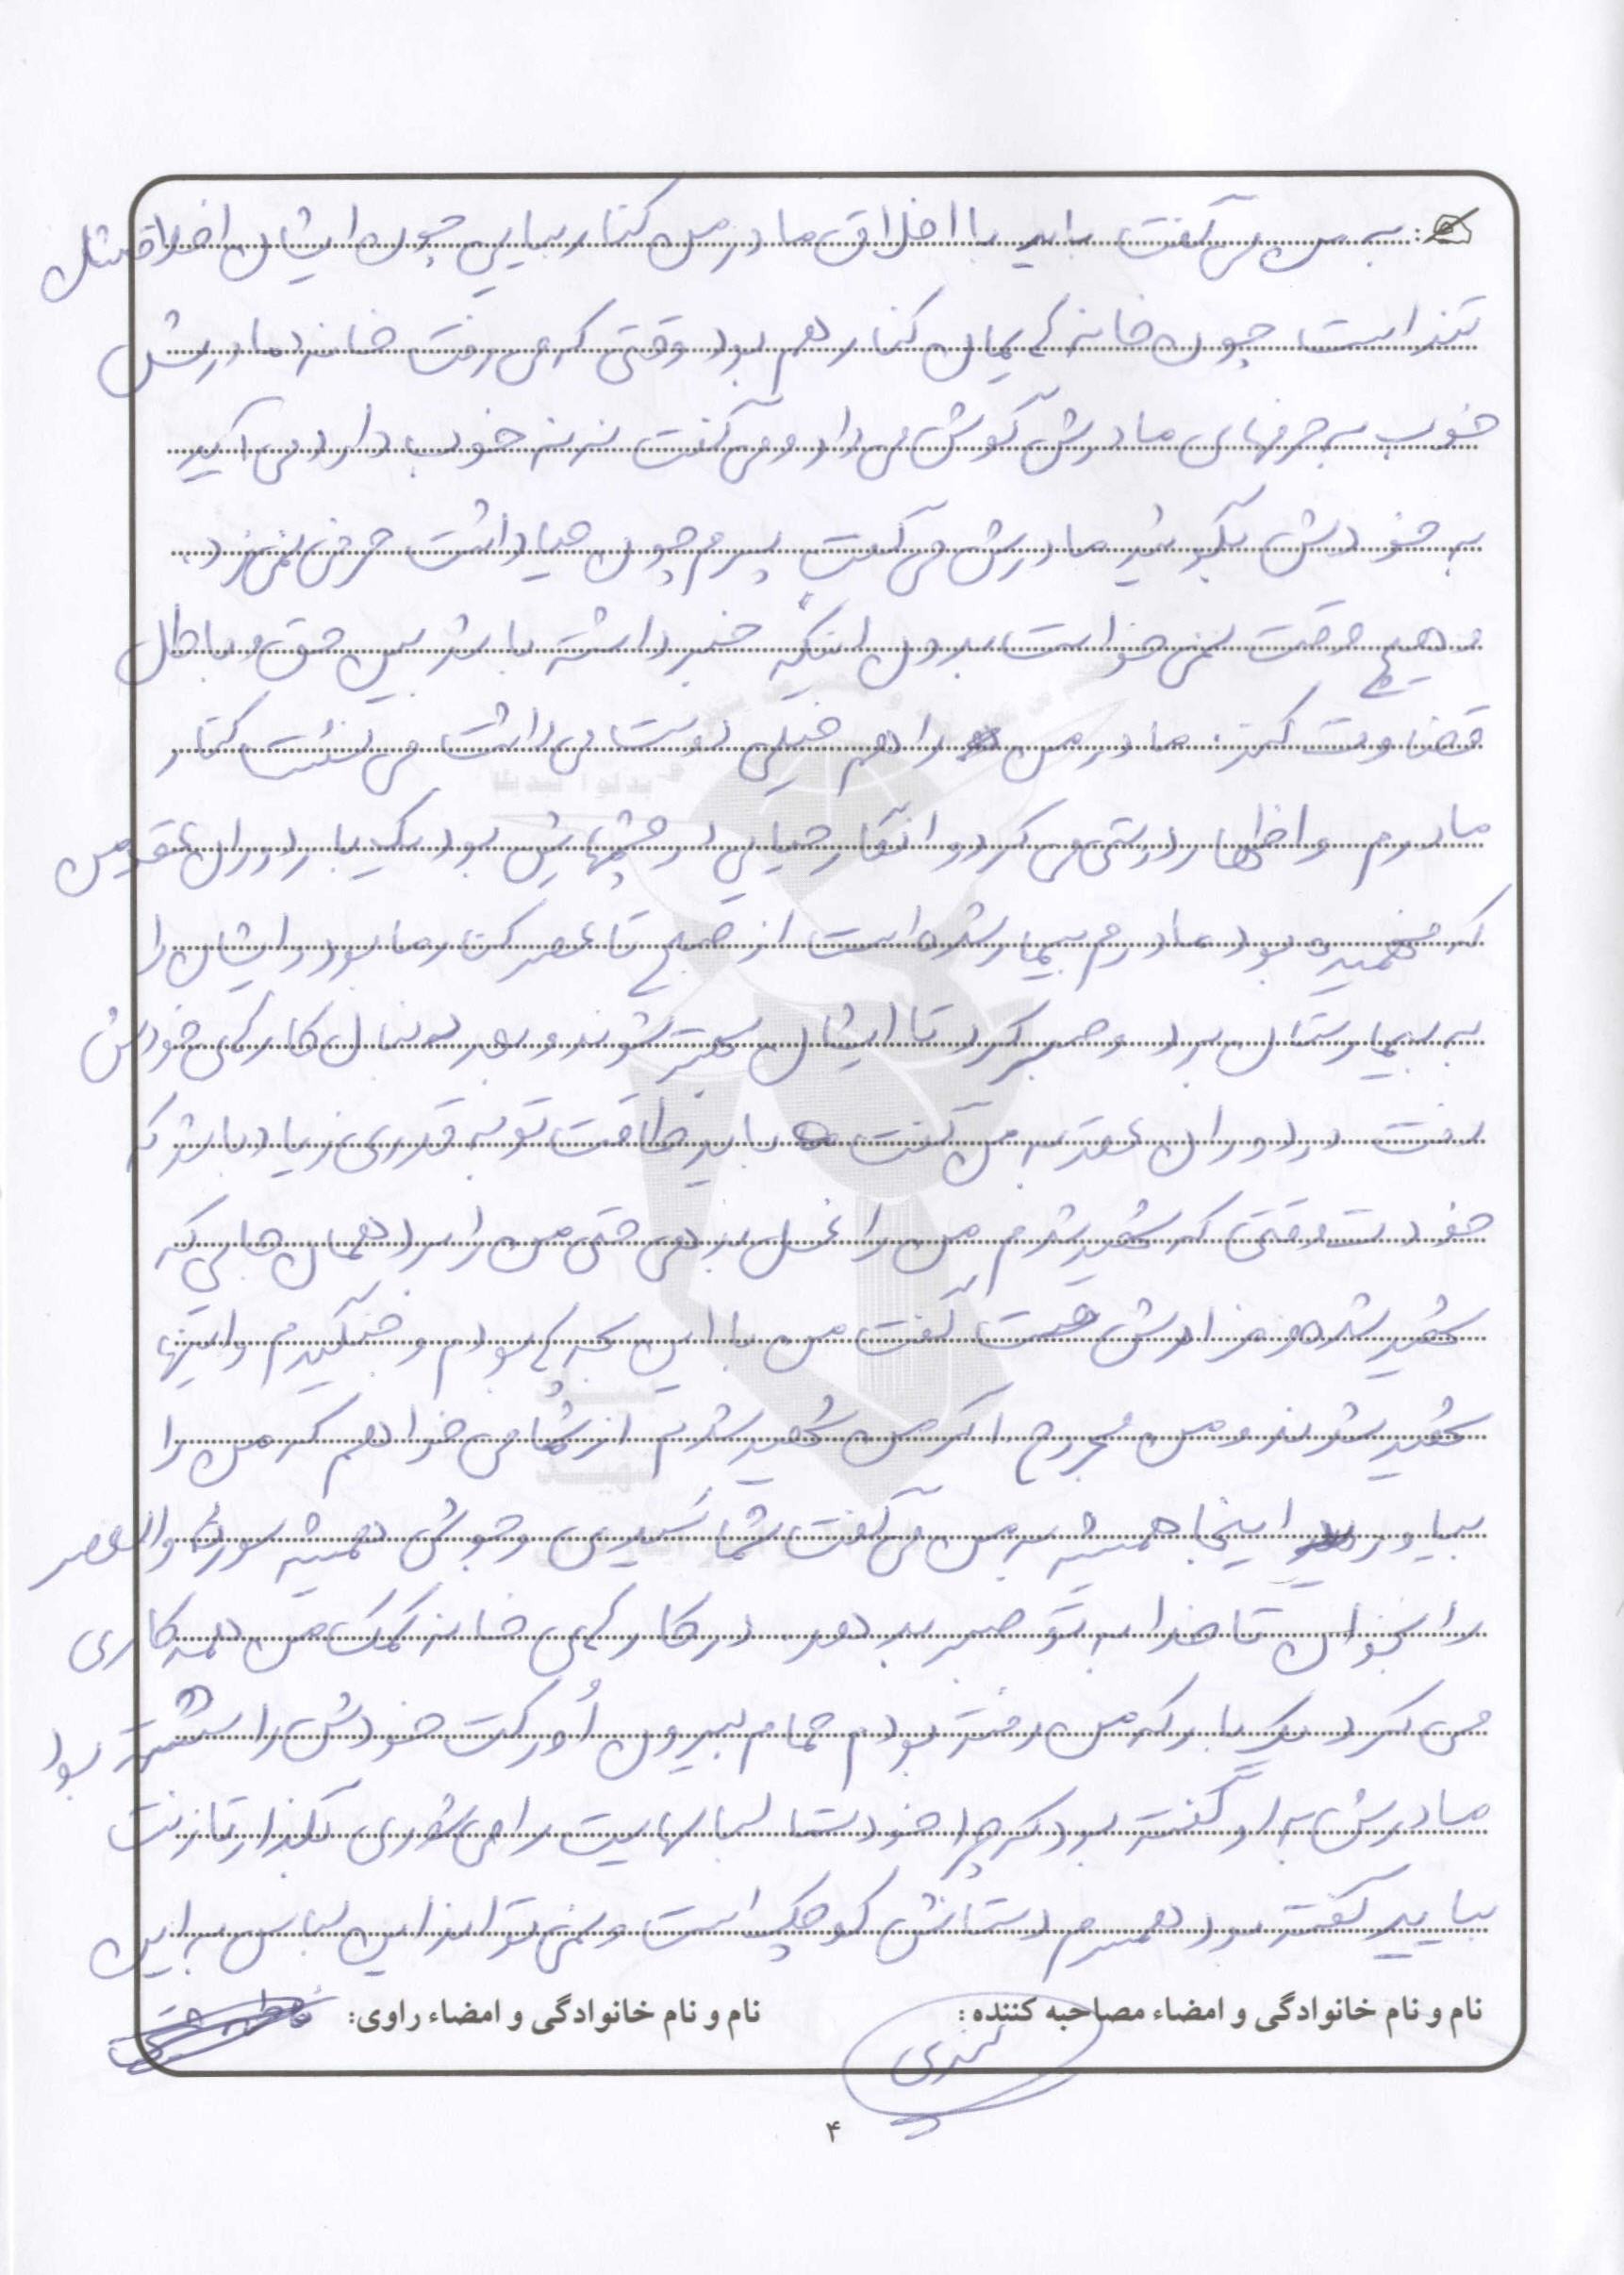 به من می گفت باید با اخلاق مادر من کنار بیایی چون ایشان اخلاقشان
تند است چون خانه هایمان کنار هم بود وقتی که می رفت خانه مادرش
خوب به حرفهای مادرش گوش می داد و می گفت ننه خوب دارد می آید
به خودش بگوئید مادرش می گفت پسرم چون حیا داشت حرفی نمی زد.
و هیچ وقت نمی خواست بدون اینکه خبر داشته باشد بین حق و باطل
قضاوت کند. مادر من را هم خیلی دوست می داشت می نشست کنار
مادرم و اظهار درستی می کرد و انگار حیایی در چشمهایش بود یکبار دوران عقد من
که فهمیده بود مادرم بیمار شده است از صبح تا عصر کنار ما بود و ایشان را
به بیمارستان برد و صبر کرد تا ایشان بهتر شوند و بعد دنبال کارهای خودش
رفت در دوران عقد به من گفت باید طاقت تو به قدری زیاد باشد که
خودت وقتی که شهید شدم من را غسل بدهی حتی من را برد همان جایی که
شهید شده و مزارش هست گفت من با این بچه ها بودم و جنگیدم و اینها
شهید شدند و من مجروح اگر من شهید شدم از شما می خواهم که من را
بیاورید اینجا همیشه به من می گفت شما سیدی و جوش همیشه سوره والعصر
را بخوان تا خدا به تو صبر بدهد. در کارهای خانه کمک من همه کاری
می کرد یک بار که من رفته بودم حمام بیرون اُورکت خودش را شسته بود
مادرش به او گفته بود که چرا خودت لباسهایت را می شوری بگذار تا زنت
بیاید گفته بود همسرم دستانش کوچک است و نمی تواند این لباس به این
نام و نام خانوادگی و امضاء مصاحبه کننده :
نام و نام خانوادگی و امضاء راوی:
۴